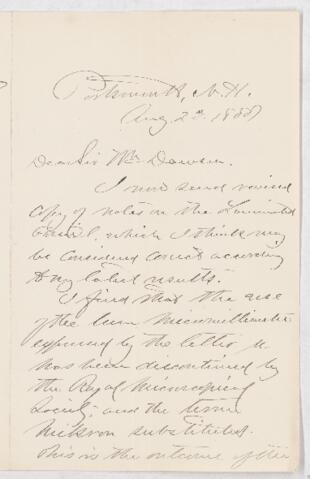 Portsmouth, N.H.
Aug 2nd 1888
Dear Sir Wm Dawson.
I now send revised
copy of notes on the Laminated
fossil, which I think may
be considered correct according
to my latest results.
I find that the use
of the term micromillimeter
expressed by the letter µ
has been discontinued by
the Royal Microscopical
Society and the term
Mikron substituted.
This is the outcome of the